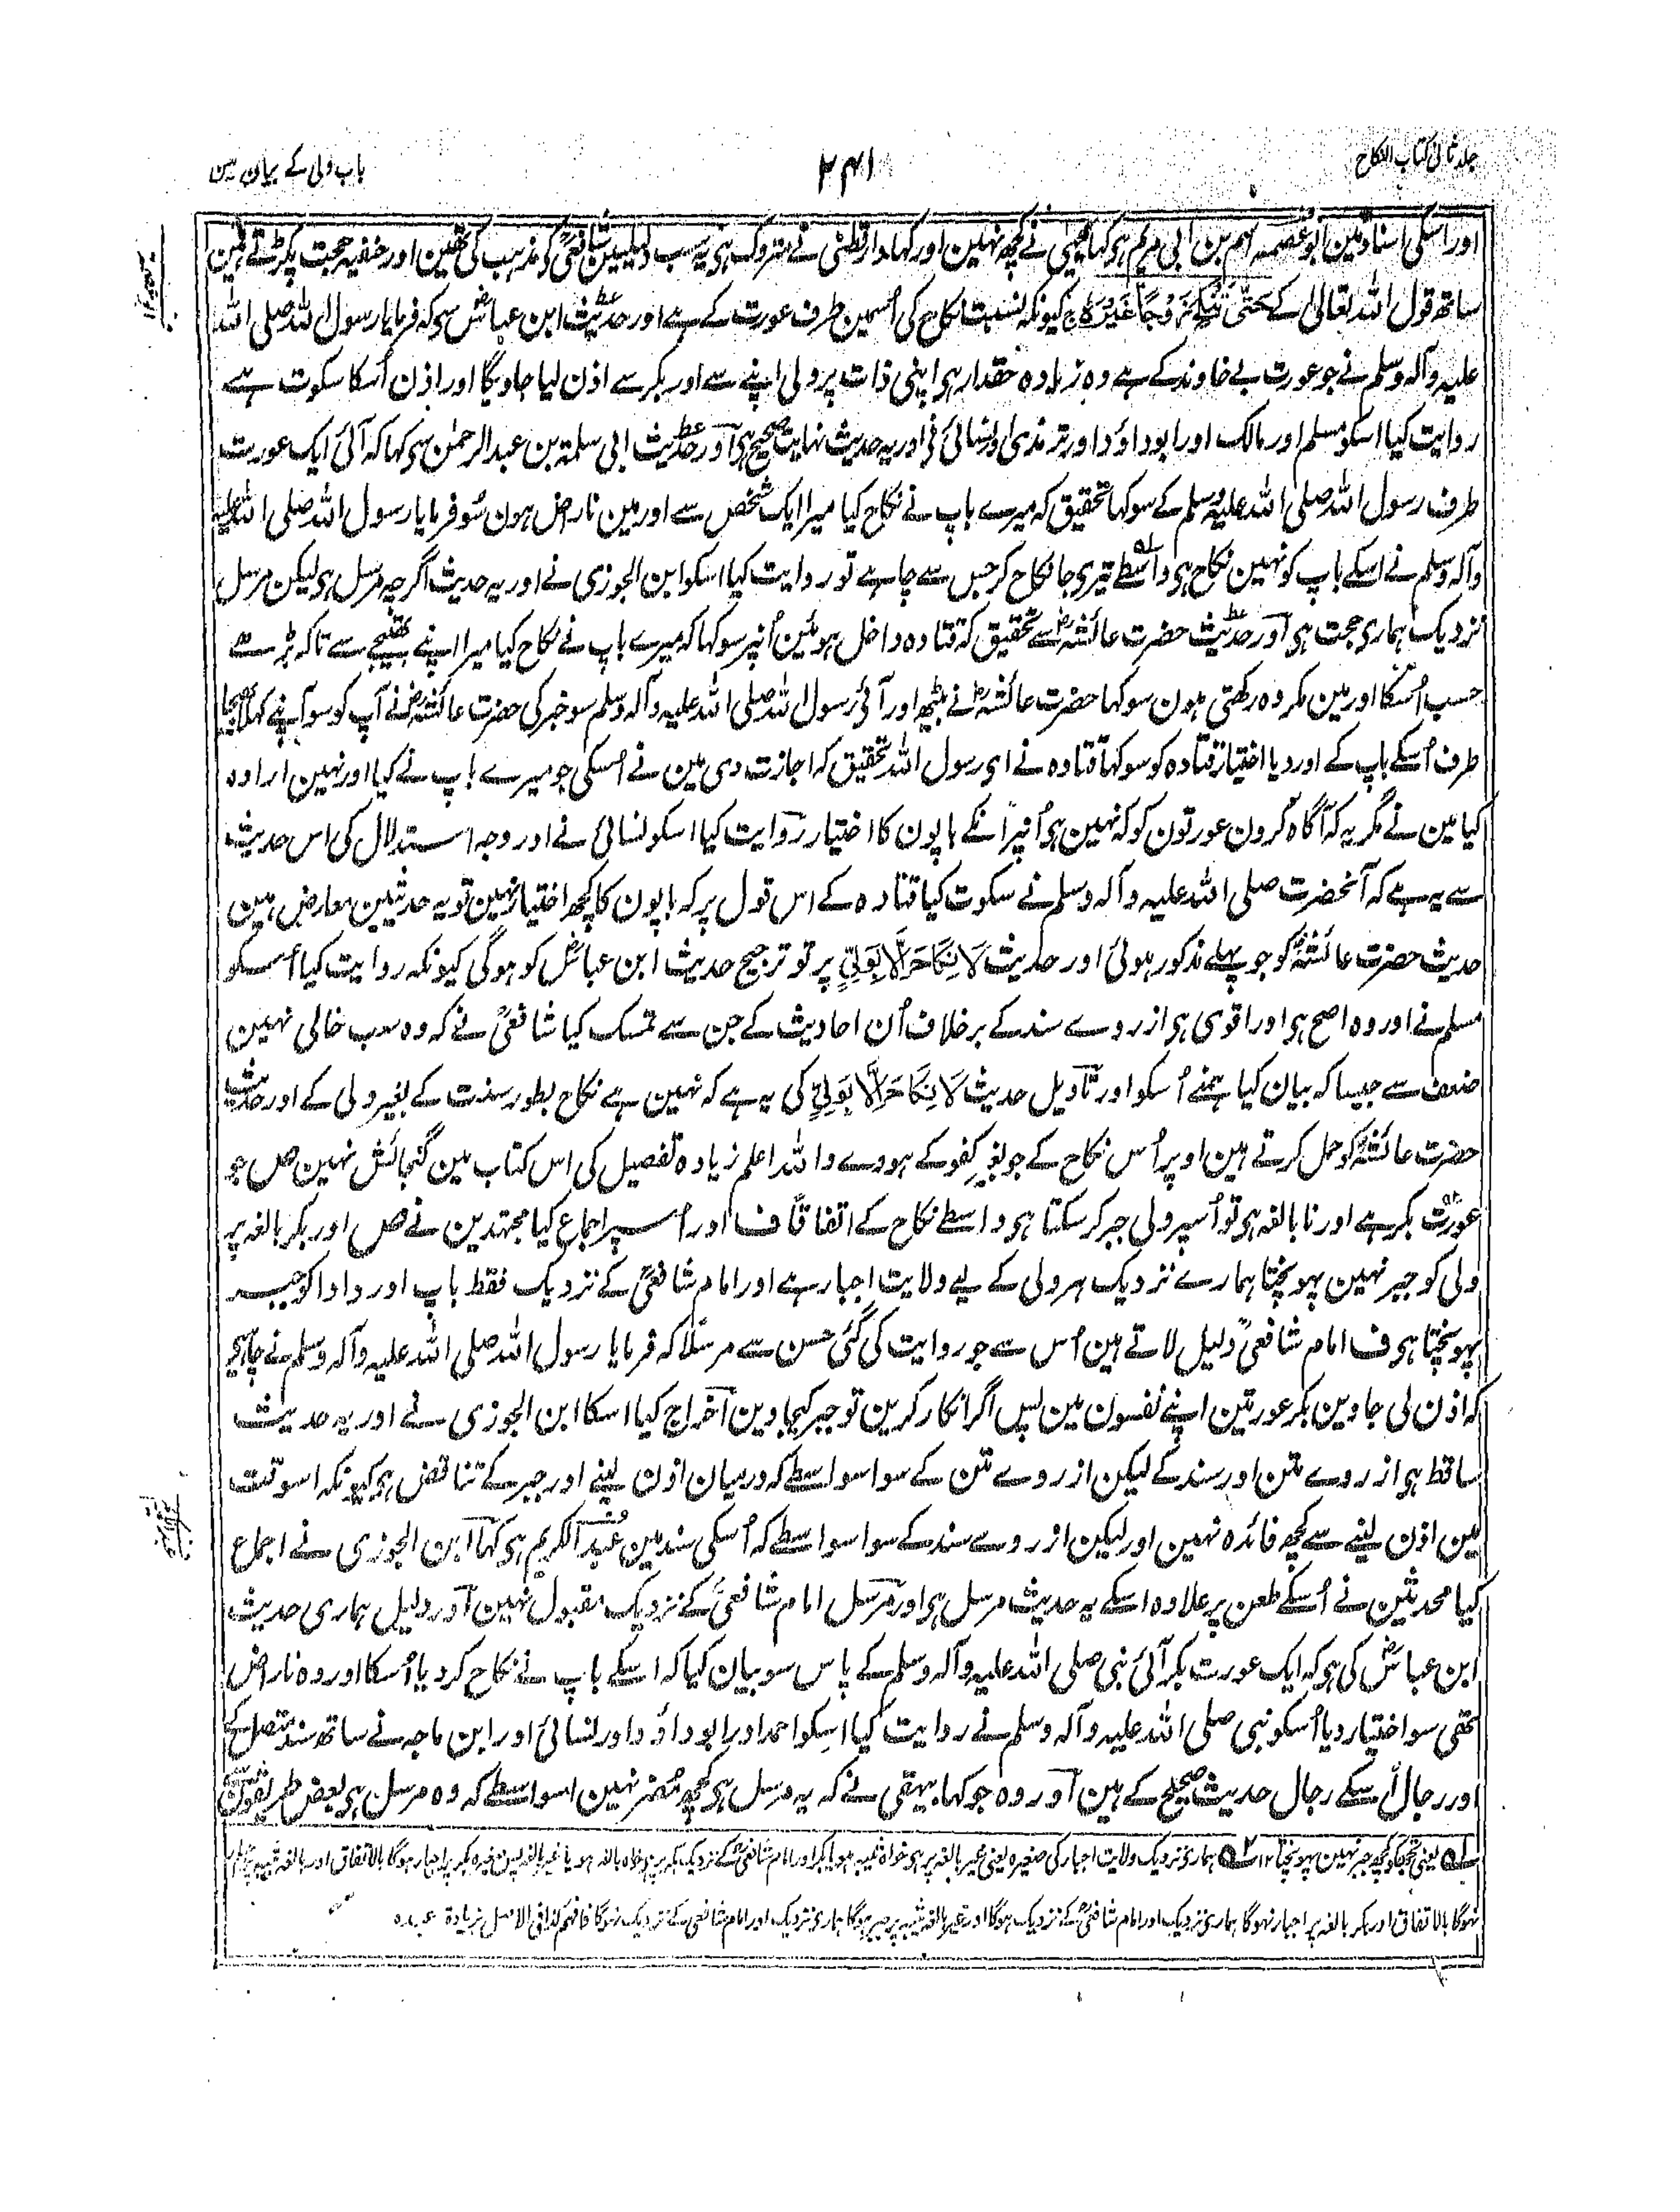 جلد ثانی کتاب النکاح
۲۴۱
باب ولی کے بیان مین
اور اسکی اسناد مین ابو عصمہ اسم بن ابی مریم ہی کہا یحییٰ نے کچھ نہین اور کہا دارقطنی نے متروک ہی یہ سب دلیلین شافعیؒ کو مذہب کی تھین اور حنفیہ حجت پکڑتے ہین
ساتھ قول اللہ تعالیٰ کے حَتّٰی تَنْکِحَ زَوْجًا غَیْرَہٗ ج کیونکہ نسبت نکاح کی اُسمین طرف عورت کے ہے اور حدیث ابن عباسؓ سی کہ فرمایا رسول اللہ صلی اللہ
علیہ وآلہ وسلم نے جو عورت بے خاوند کے ہے وہ زیادہ حقدار ہی اپنی ذات پر ولی اپنے سے اور بکر سے اذن لیا جاویگا اور اذن اُسکا سکوت ہے
روایت کیا اسکو مسلم اور مالک اور ابو داؤد اور ترمذی اور نسائی نے اور یہ حدیث نہایت صحیح ہی اور حدیث ابی سلمۃ بن عبد الرحمٰن سی کہا کہ آئی ایک عورت
طرف رسول اللہ صلی اللہ علیہ وسلم کے سو کہا تحقیق کہ میرے باپ نے نکاح کیا میرا ایک شخص سے اور مین ناراض ہون سو فرمایا رسول اللہ صلی اللہ علیہ
وآلہ وسلم نے اسکے باپ کو نہین نکاح ہی واسطے تیری جا نکاح کر جس سے چاہے تو روایت کیا اسکو ابن الجوزی نے اور یہ حدیث اگرچہ مرسل ہی لیکن مرسل
نزدیک ہماری حجت ہی اور حدیث حضرت عائشہؓ سے تحقیق کہ قتادہ داخل ہوئین اُنپر سو کہا کہ میرے باپ نے نکاح کیا میرا اپنے بھتیجے سے تاکہ بڑہے
حسب اُسکا اور مین مکروہ رکھتی ہون سو کہا حضرت عائشہؓ نے بیٹھ اور آئے رسول اللہ صلی اللہ علیہ وآلہ وسلم سو خبر کی حضرت عائشہؓ نے آپ کو سو آپنے کہلا بھیجا
طرف اُسکے باپ کے اور دیا اختیار قتادہ کو سو کہا قتادہ نے ای رسول اللہ تحقیق کہ اجازت دی مین نے اُسکی جو میرے باپ نے کیا اور نہین ارادہ
کیا مین نے مگر یہ کہ آگاہ کرون عورتون کو کہ نہین ہی اُنپر اُنکے باپون کا اختیار روایت کیا اسکو نسائی نے اور وجہ استدلال کی اس حدیث
سے یہ ہے کہ آنحضرت صلی اللہ علیہ وآلہ وسلم نے سکوت کیا قتادہ کے اس قول پر کہ باپون کا کچھ اختیار نہین تو یہ حدیثین معارض ہین
حدیث حضرت عائشہؓ کو جو پہلے مذکور ہوئی اور حدیث لَا نِکَاحَ اِلَّا بِوَلِیٍّ پر تو ترجیح حدیث ابن عباسؓ کو ہوگی کیونکہ روایت کیا اُسکو
مسلم نے اور وہ اصح ہی اور اقوی ہی ازروے سند کے برخلاف اُن احادیث کے جن سے تمسک کیا شافعیؒ نے کہ وہ سب خالی نہین
ضعف سے جیسا کہ بیان کیا ہمنے اُسکو اور تاویل حدیث لَا نِکَاحَ اِلَّا بِوَلِیٍّ کی یہ ہے کہ نہین ہے نکاح بطور سنت کے بغیر ولی کے اور حدیث
حضرت عائشہؓ کو حمل کرتے ہین اوپر اُس نکاح کے جو بغیر کفو کے ہووے واللہ اعلم زیادہ تفصیل کی اس کتاب مین گنجائش نہین ص جو
عورت بکر ہے اور نابالغہ ہی تو اُسپر ولی جبر کر سکتا ہی واسطے نکاح کے اتفاقًا ف اور اُسپر اجماع کیا مجتہدین نے ص اور بکر بالغہ پر
ولی کو جبر نہین پہونچتا ہمارے نزدیک ہر ولی کے لیے ولایت اجبار ہے اور امام شافعیؒ کے نزدیک فقط باپ اور دادا کو جبر
پہونچتا ہی ف امام شافعیؒ دلیل لاتے ہین اُس سے جو روایت کی گئی حسن سے مرسلًا کہ فرمایا رسول اللہ صلی اللہ علیہ وآلہ وسلم نے چاہیے
کہ اذن لی جاوین بکر عورتین اپنے نفسون مین پس اگر انکار کرین تو جبر کیجاوین اخراج کیا اسکا ابن الجوزی نے اور یہ حدیث
ساقط ہی ازروے متن اور سند کے لیکن ازروے متن کے سو اسواسطے کہ درمیان اذن لینے اور جبر کے تناقض ہی کیونکہ اسوقت
مین اذن لینے سے کچھ فائدہ نہین اور لیکن ازروے سند کے سو اسواسطے کہ اُسکی سند مین عبد الکریم ہی کہا ابن الجوزی نے اجماع
کیا محدثین نے اُسکے طعن پر علاوہ اسکے یہ حدیث مرسل ہی اور مرسل امام شافعیؒ کے نزدیک مقبول نہین اور دلیل ہماری حدیث
ابن عباسؓ کی ہی کہ ایک عورت بکر آئی نبی صلی اللہ علیہ وآلہ وسلم کے پاس سو بیان کیا کہ اسکے باپ نے نکاح کر دیا اُسکا اور وہ ناراض
تھی سو اختیار دیا اُسکو نبی صلی اللہ علیہ وآلہ وسلم نے روایت کیا اسکو احمد اور ابو داؤد اور نسائی اور ابن ماجہ نے ساتھ سند متصل کے
اور رجال اُسکے رجال حدیث صحیح کے ہین اور وہ جو کہا بیہقی نے کہ یہ مرسل ہی کچھ مضر نہین اسواسطے کہ وہ مرسل ہی بعض طریقون
۱ یعنی تجھ کو کچھ جبر نہین پہونچتا ۱۲ ۲ ہماری نزدیک ولایت اجبار کی صغیرہ یعنی غیر بالغہ پر ہی خواہ ثیبہ ہو یا بکر اور امام شافعیؒ کے نزدیک بکر پر خواہ بالغہ ہو یا غیر بالغہ پس صغیرہ بکر پر اجبار ہوگا بالاتفاق اور بالغہ ثیبہ پر
نہوگا بالاتفاق اور بکر بالغہ پر اجبار نہوگا ہماری نزدیک اور امام شافعیؒ کے نزدیک ہوگا اور غیر بالغہ ثیبہ پر جبر ہوگا ہماری نزدیک اور امام شافعی کے نزدیک نہوگا فافہم کذا فی الاصل بزیادۃ